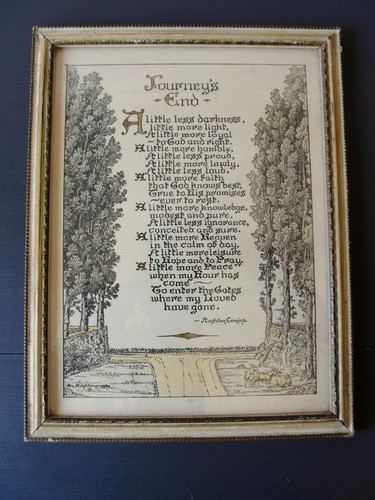 Journey's
End
A little less darkness,
A little more light,
A little more loyal
to God and right.
A little more humble,
A little less proud,
A little more lowly,
A little less loud.
A little more faith
that God knows best,
True to His promises
ever to rest.
A little more knowledge,
modest and pure,
A little less ignorance,
conceited and sure.
A little more Heaven
in the calm of day,
A little more leisure
to Hope and to Pray.
A little more Peace
when my Hour has
come
To enter the Gates
where my Loved
have gone.